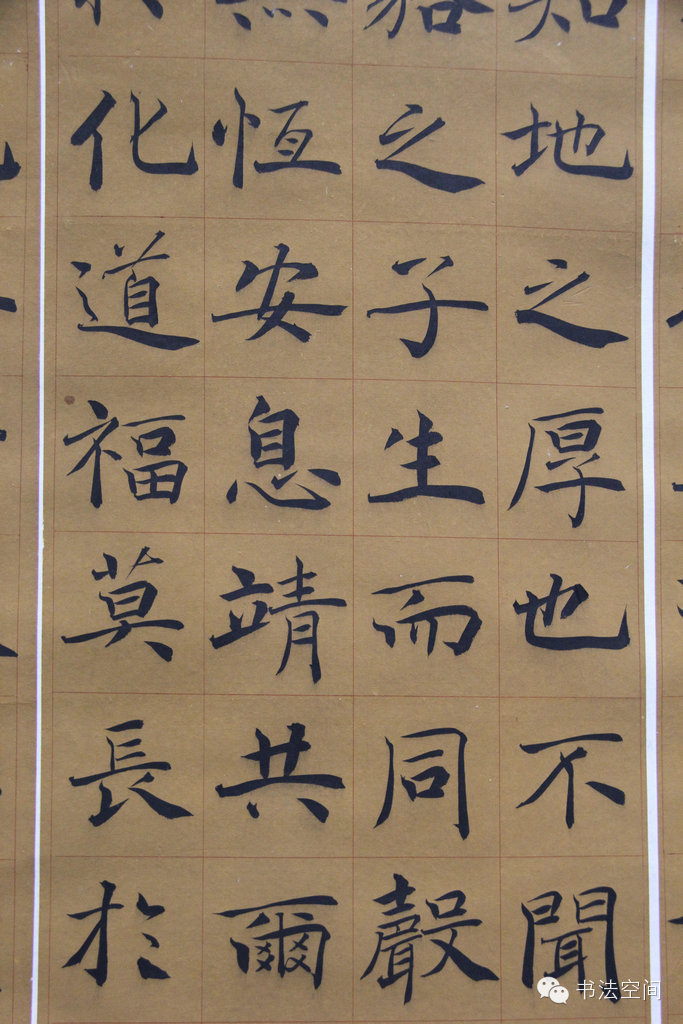 知地之厚也不聞
貉之子生而同聲
無恆安息靖共爾
於化道福莫長於
书法空间